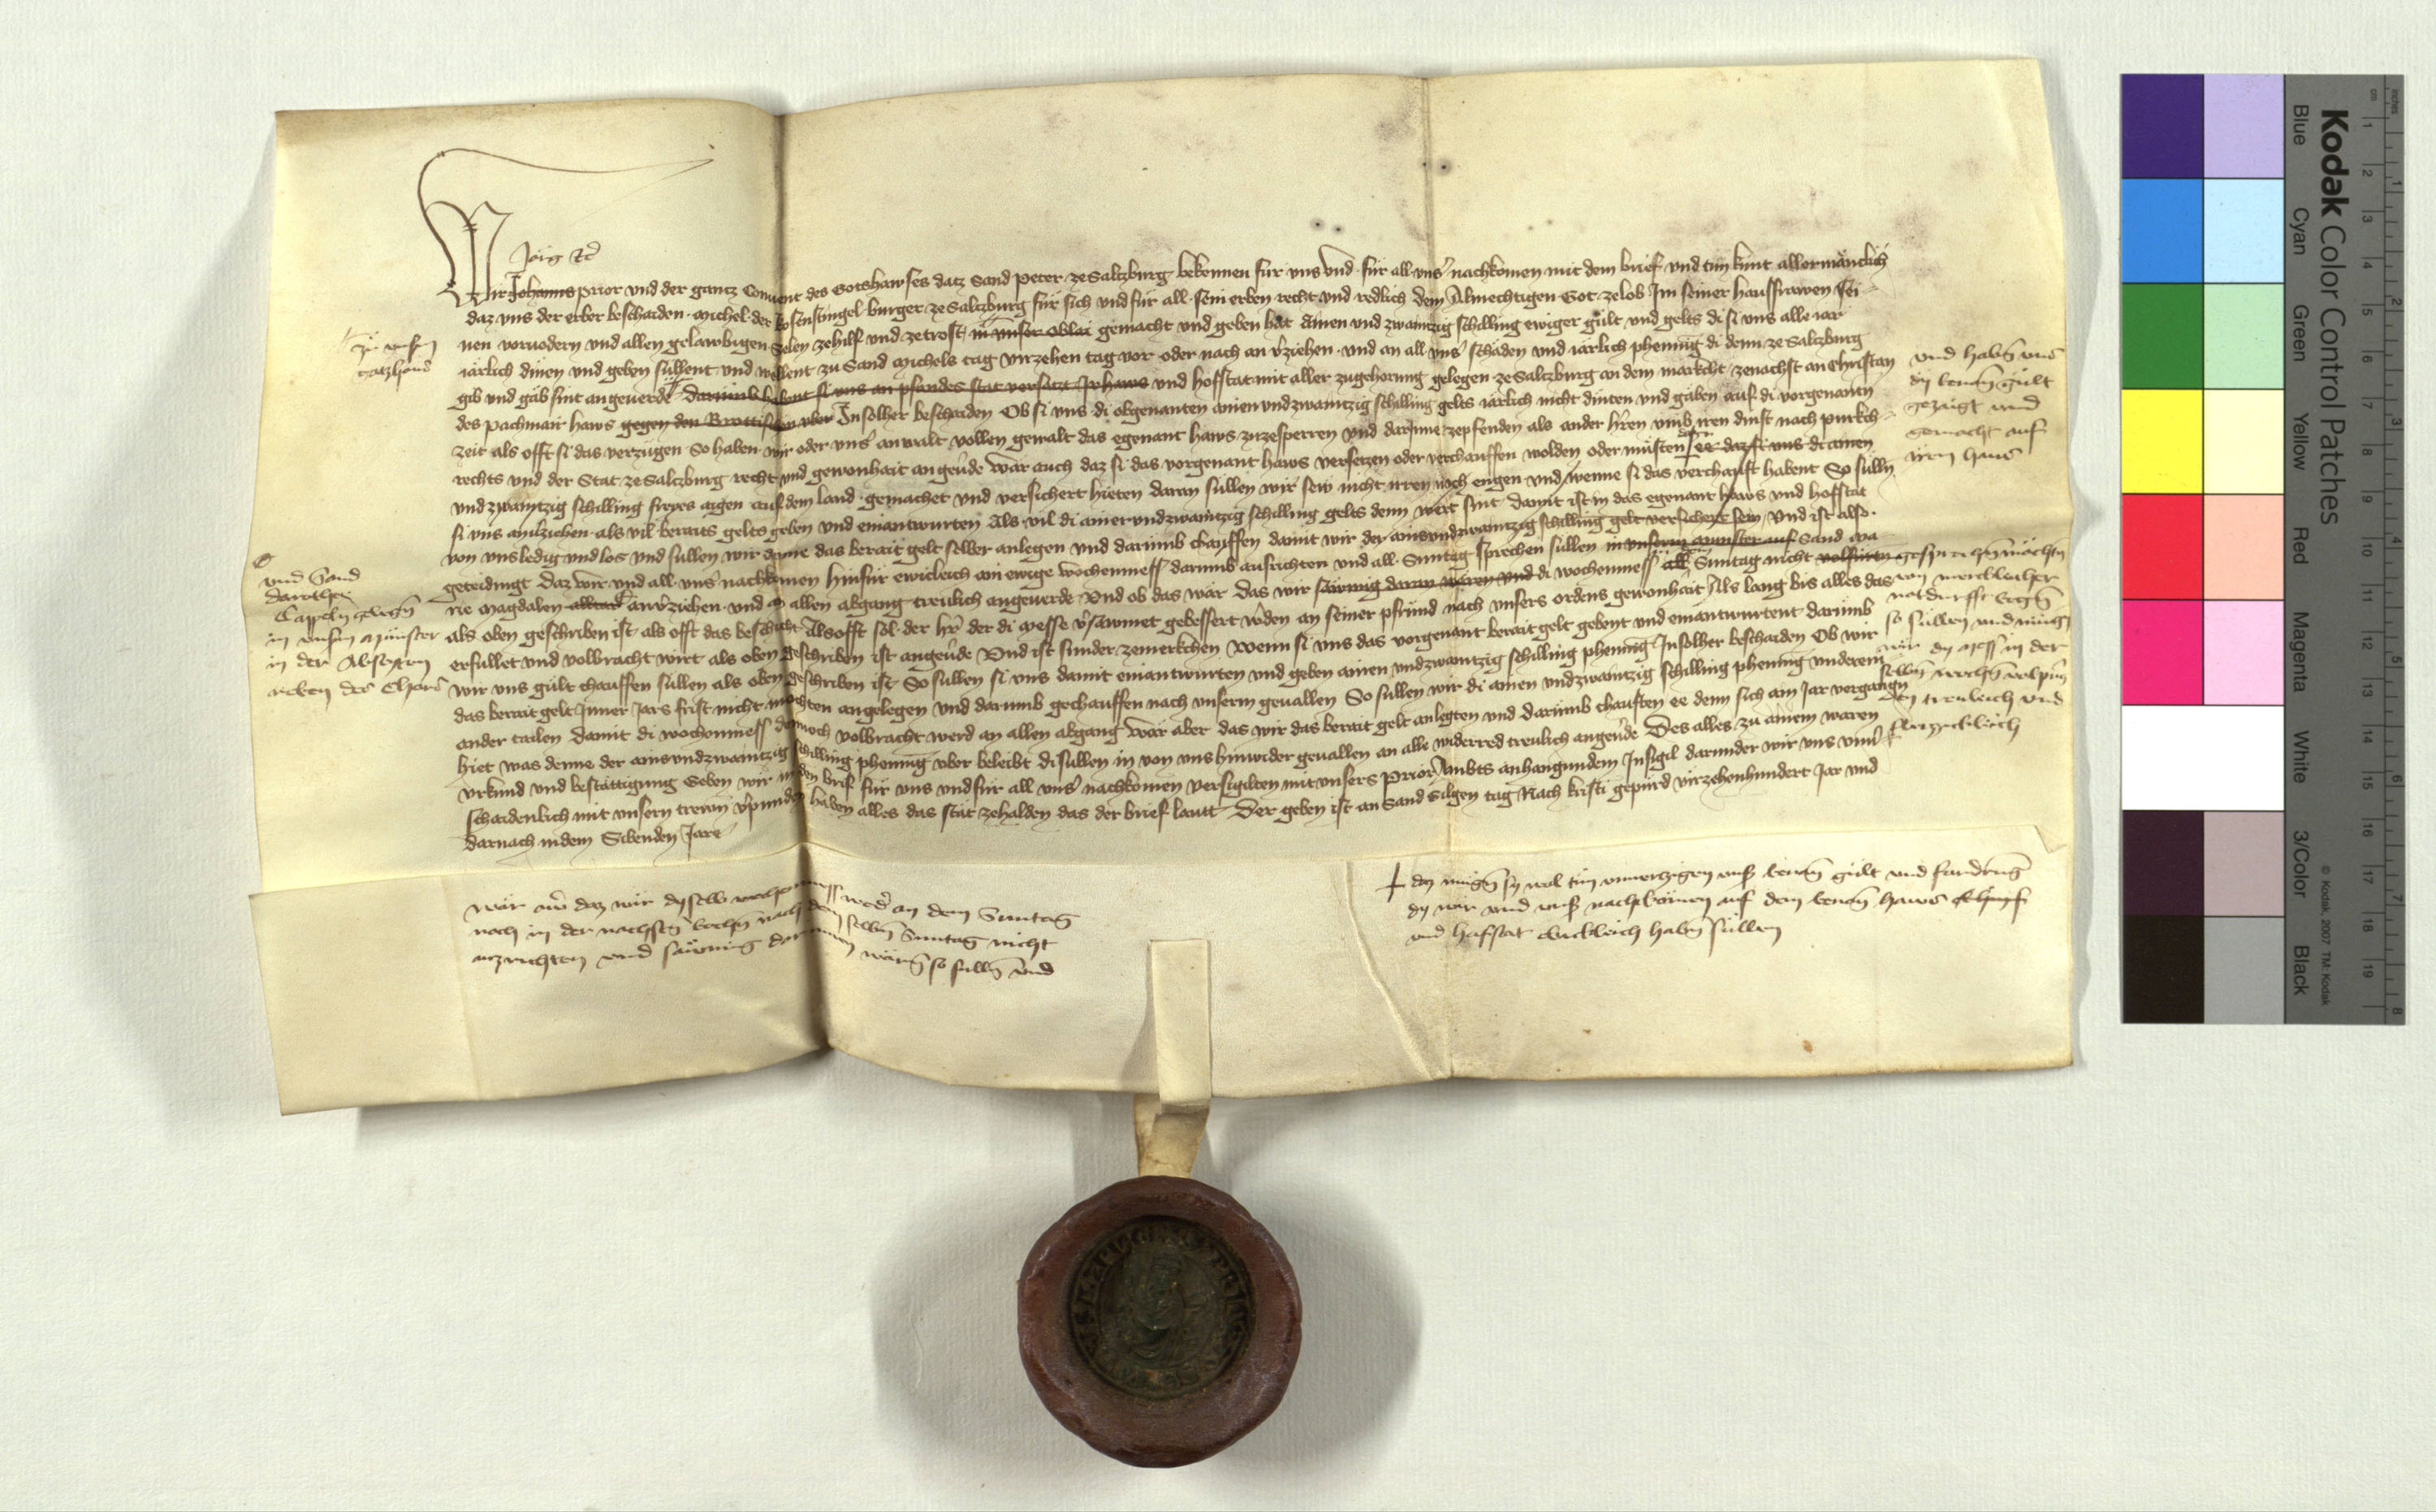 Jörg etc
Wir Johanns prior vnd der gantz Conuent des Gotshawses datz Sand Peter ze Saltzburg bekennen für vns vnd für all vnser nachkomen mit dem brief vnd tun kunt allermänclich
daz vns der erber beschaiden Michel der Kostenstingel burger ze Saltzburg für sich vnd für all sein erben recht vnd redlich dem Almechtigen Got ze lob Im seiner hausfrawen sei-
nen voruodern vnd allen gelawbigen selen ze hilf vnd ze trost in vnser oblai gemacht vnd geben hat ainen vnd zwaintzig schilling ewiger gült vnd gelts di si vns alle iar
iärlich dinen vnd geben süllent vnd wellent zu Sand Michels tag virzehen tag vor oder nach an verziehen vnd an all vnser schäden vnd iärlich phening di denn ze Saltzburg
gib vnd gäb sint an geuerde Darumb habent si vns an pfandes stat versatzt Ir haws vnd hofstat mit aller zugehorung gelegen ze Saltzburg an dem markcht zenachst an Christan
des pachmair haws gegen den Brottischen vber In solher beschaiden Ob si vns di obgenanten ainen vnd zwaintzig schilling gelts iärlich nicht dinten vnd gäben auf di vorgenanten
zeit als offt si das verzügen So haben wir oder vnser anwalt vollen gewalt das egenant haws zuzesperren vnd darinne zepfenden als ander herren vmb iren dinst nach purkch-
rechts vnd der Stat ze Saltzburg recht vnd gewonhait an geuerde Wär auch daz si das vorgenant haws versetzen oder verchauffen wolden oder müsten ee daz si vns di ainen
vnd zwaintzig schilling freyes aigen auf dem land gemachet vnd versichert hieten daran süllen wir sew nicht irren noch engen vnd wenne si das verchauft habent So sulln
si vns an verziehen als vil beraits gelts geben vnd einantwurten Als vil di ainer vnd zwaintzig schilling gelts denn wert sint damit ist in das egenant haws vnd hofstat
von vns ledig vnd los vnd sullen wir denne das berait gelt selber anlegen vnd darumb chauffen damit wir der ains vnd zwaintzig schilling gelt versichert sein Vnd ist also
geteidingt daz wir vnd all vnser nachkomen hinfür ewicleich ain ewige wochenmess darumb ausrichten vnd all Suntag sprechen sullen in vnserm munster auf Sand Ma-
rie Magdalen alltar an verziehen vnd an allen abgang treulich an geuerde Vnd ob das wär Das wir säwmig daran wären vnd di wochenmess all Suntag nicht volfürten
als oben geschriben ist als offt das beschicht Als offt sol der herr der di messe versawmet gebessert werden an seiner pfründ nach vnsers ordens gewonhait Als lang bis alles das
erfullet vnd volbracht wirt als oben geschriben ist an geuerde Vnd ist sunder zemerkchen Wenn si vns das vorgenant berait gelt gebent vnd einantwurtent darumb
wir vns gült chauffen süllen als oben geschriben ist So sullen si vns damit einantwurten vnd geben ainen vnd zwaintzig schilling phening In solher beschaiden Ob wir
das berait gelt Inner Jars frist nicht möchten angelegen vnd darumb gechauffen nach vnserm geuallen So sullen wir di ainen vnd zwaintzig schilling phening vnder ein
ander tailen damit di wochenmess dennoch volbracht werd an allen abgang Wär aber das wir das berait gelt anlegten vnd darumb chauften ee denn sich ain Jar vergangen
hiet was denne der ains vnd zwaintzig schilling phening vber beleibt di sullen in von vns hinwider geuallen an alle widerred treulich an geuerde Des alles zu ainem waren
vrkund vnd bestättigung Geben wir in den brif für vns vnd für all vnser nachkomen versigilten mit vnsers Prior Ambts anhangundem Insigil darunder wir vns vnuer-
schaidenlich mit vnsern trewen verpunden haben alles das stät zehalden das der brief lautt Der geben ist an Sand Gilgen tag Nach kristi gepürd virzehenhundert Jar vnd
darnach in dem Sibenden Jare
zu vnserm
gotzhaus
vnd Sand
Dorothee
Cappeln gelegen
in vnserm Münster
in der Abseyten
neben des Chors
vnd habent vns
dy benant gült
gezaigt vnd
gemacht auf
irem haus
gesprechen möchten
von merckleicher
notdurfft wegen
so süllen vnd mügen
wir dy mess in der
selben wochen volpringen
treuleich vnd
Wär aber daz wir dyselb wochenmess weder an dem Suntag
noch in der nachsten wochen nach dem selben Suntag nicht
auzrichten vnd säwmig daran wären so sullen vnd
daz mügen sy wol tun vnuerzigen vnser benanten gült vnd fordrung
dy wir vnd vnser nachkomen auf dem benanten haws
vnd hofstat ewickleich haben süllen
Kodak Color Control Patches
Blue Cyan Green Yellow Red Magenta White 3/Color Black
© Kodak, 2007 TM: Kodak
cm 1 2 3 4 5 6 7 8 9 10 11 12 13 14 15 16 17 18 19
inches 1 2 3 4 5 6 7 8